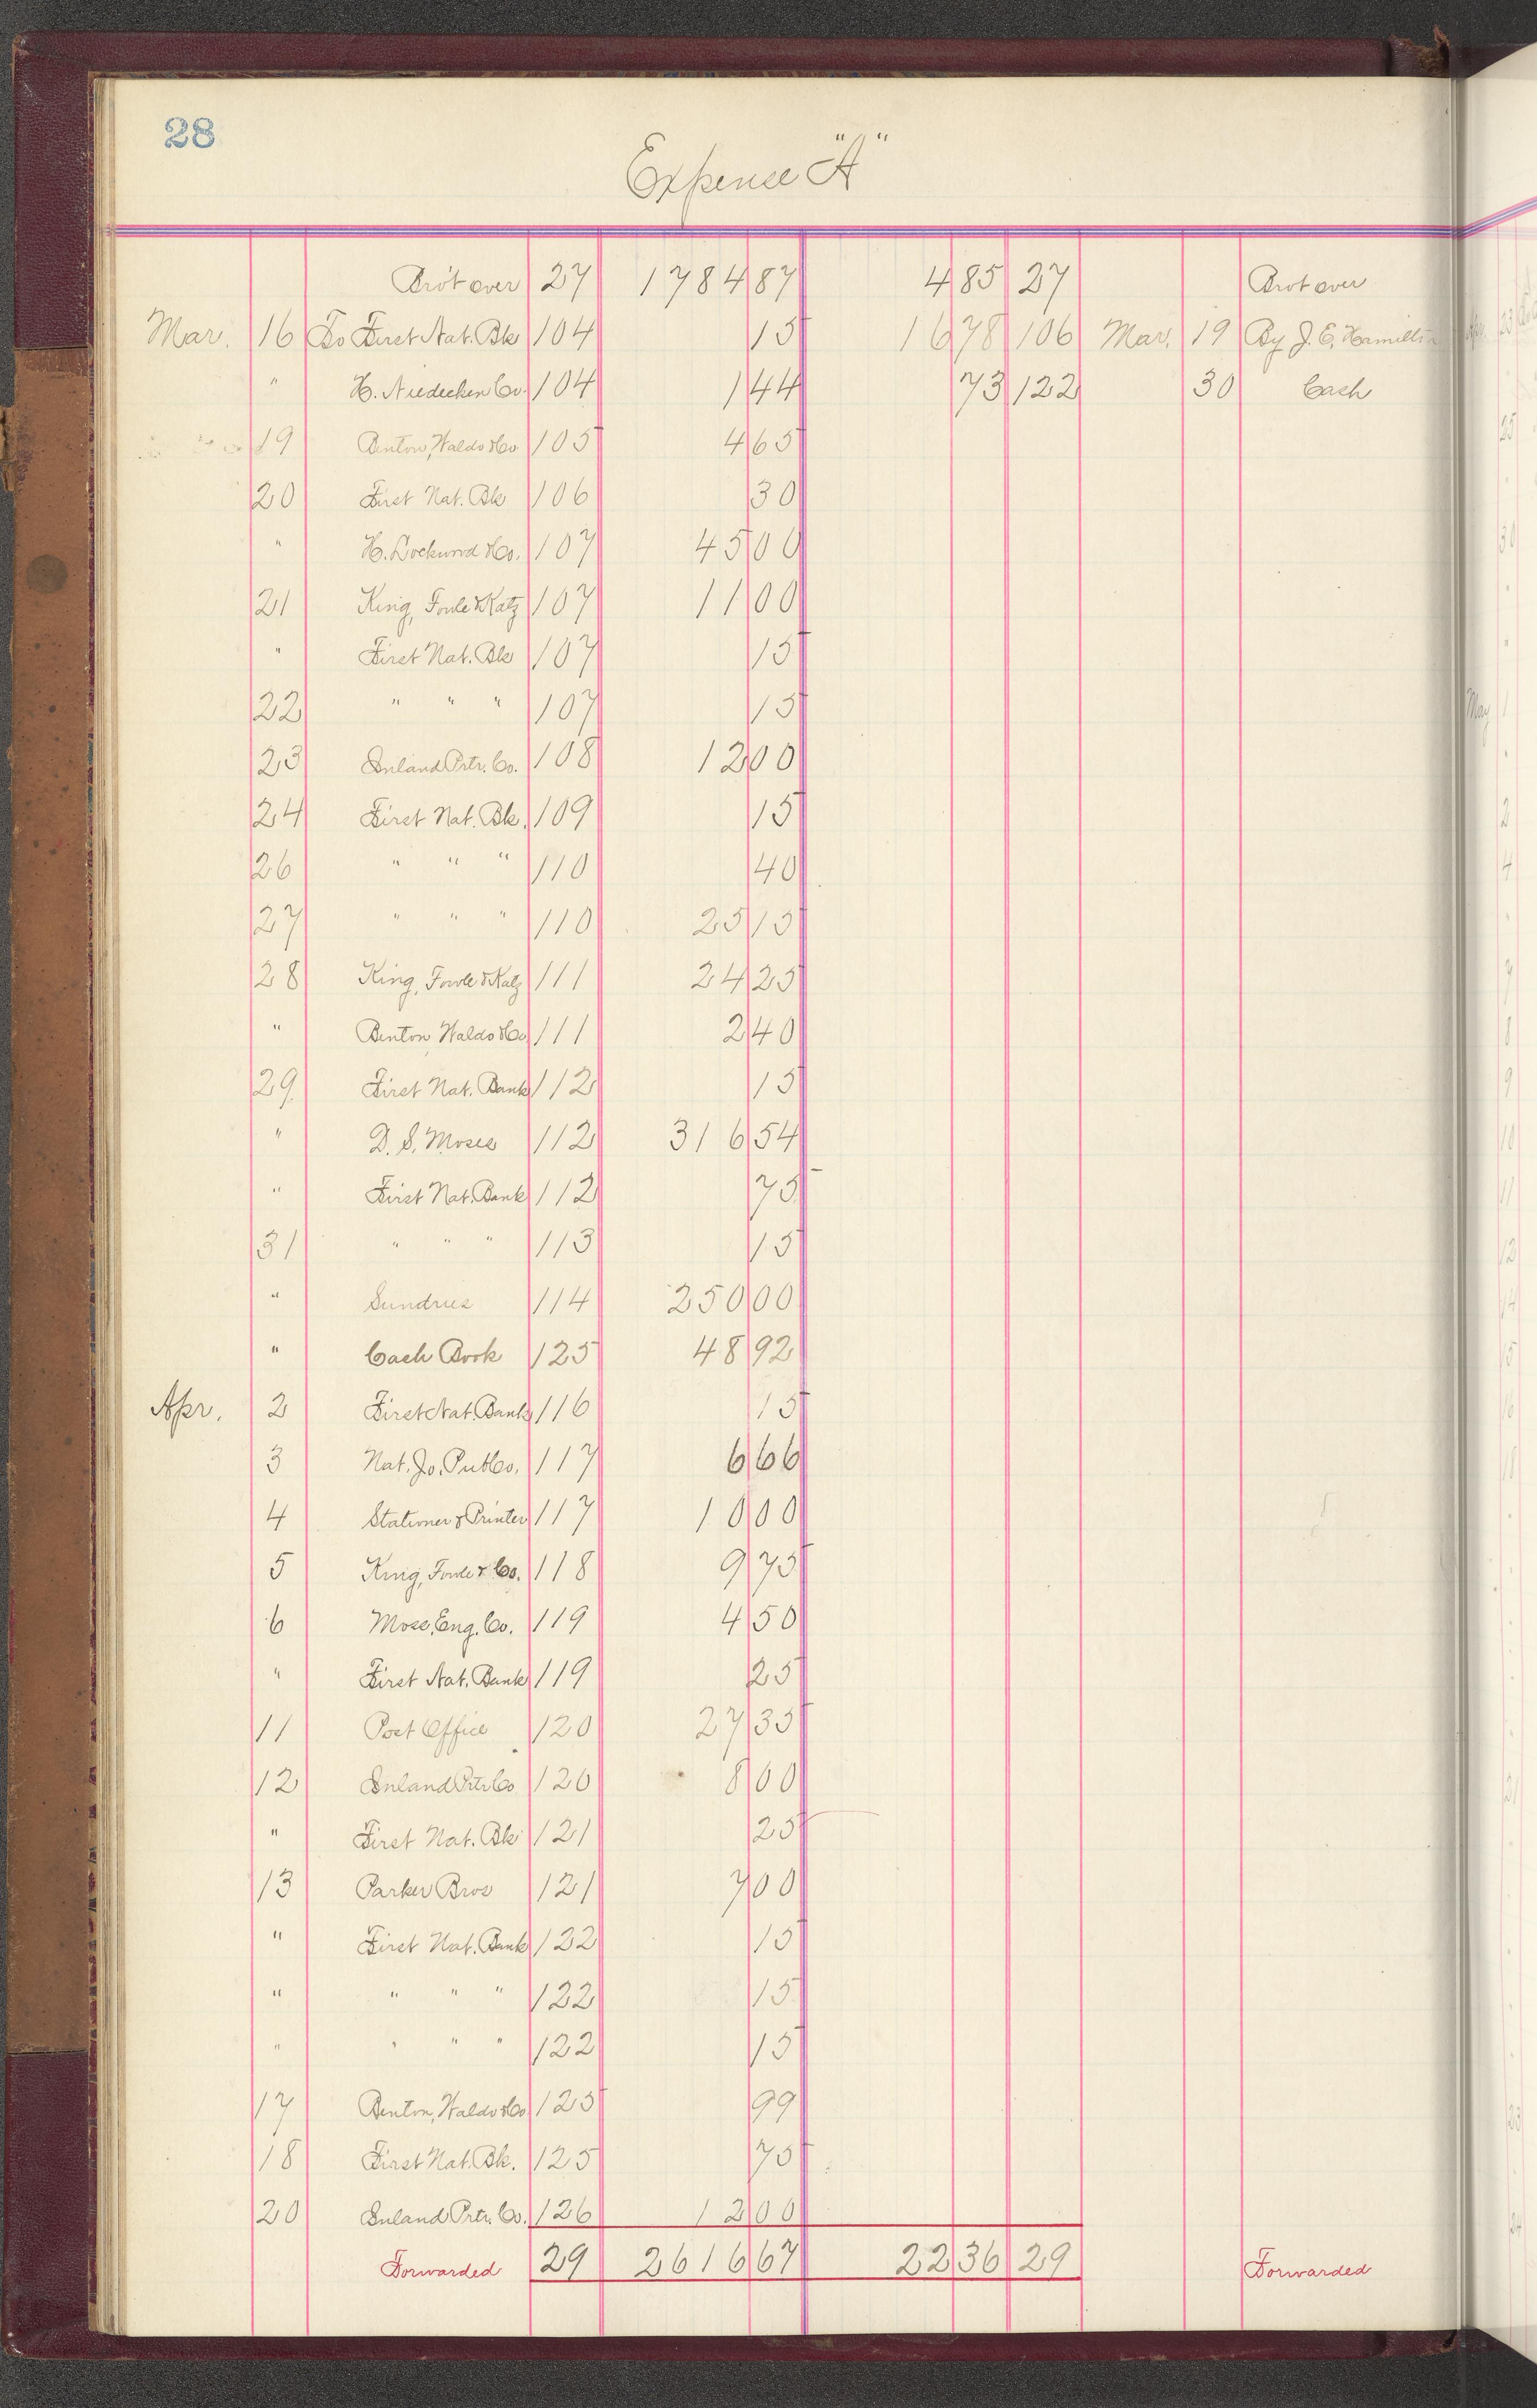 28
Expense "A"
Brot over 27 1784 87 4 85 27 Brot over
Mar. 16 To First Nat. Bk 104 15 16 78 106 Mar. 19 By J. E. Hamilton
" H. Niedecken Co. 104 1 44 73 122 30 Cash
19 Benton, Waldo & Co. 105 4 65
20 First Nat. Bk 106 30
" H. Lockwood & Co. 107 45 00
21 King, Fowle & Katz 107 11 00
" First Nat. Bk 107 15
22 " " " 107 15
23 Inland Prtr. Co. 108 12 00
24 First Nat. Bk. 109 15
26 " " " 110 40
27 " " " 110 25 15
28 King, Fowle & Katz 111 24 25
" Benton, Waldo & Co 111 2 40
29 First Nat. Bank 112 15
" D. S. Moses 112 316 54
" First Nat. Bank 112 75
31 " " " 113 15
" Sundries 114 250 00
" Cash Book 125 48 92
Apr. 2 First Nat. Bank 116 15
3 Nat. Jo. Pub Co. 117 6 66
4 Stationer & Printer 117 10 00
5 King, Fowle & Co. 118 9 75
6 Moss. Eng. Co. 119 4 50
" First Nat. Bank 119 25
11 Post Office 120 27 35
12 Inland Prtr Co 120 8 00
" First Nat. Bk 121 25
13 Parker Bros 121 7 00
" First Nat. Bank 122 15
" " " " 122 15
" " " " 122 15
17 Benton, Waldo & Co 123 99
18 First Nat. Bk. 125 75
20 Inland Prtr. Co. 126 12 00
Forwarded 29 2616 67 22 36 29 Forwarded